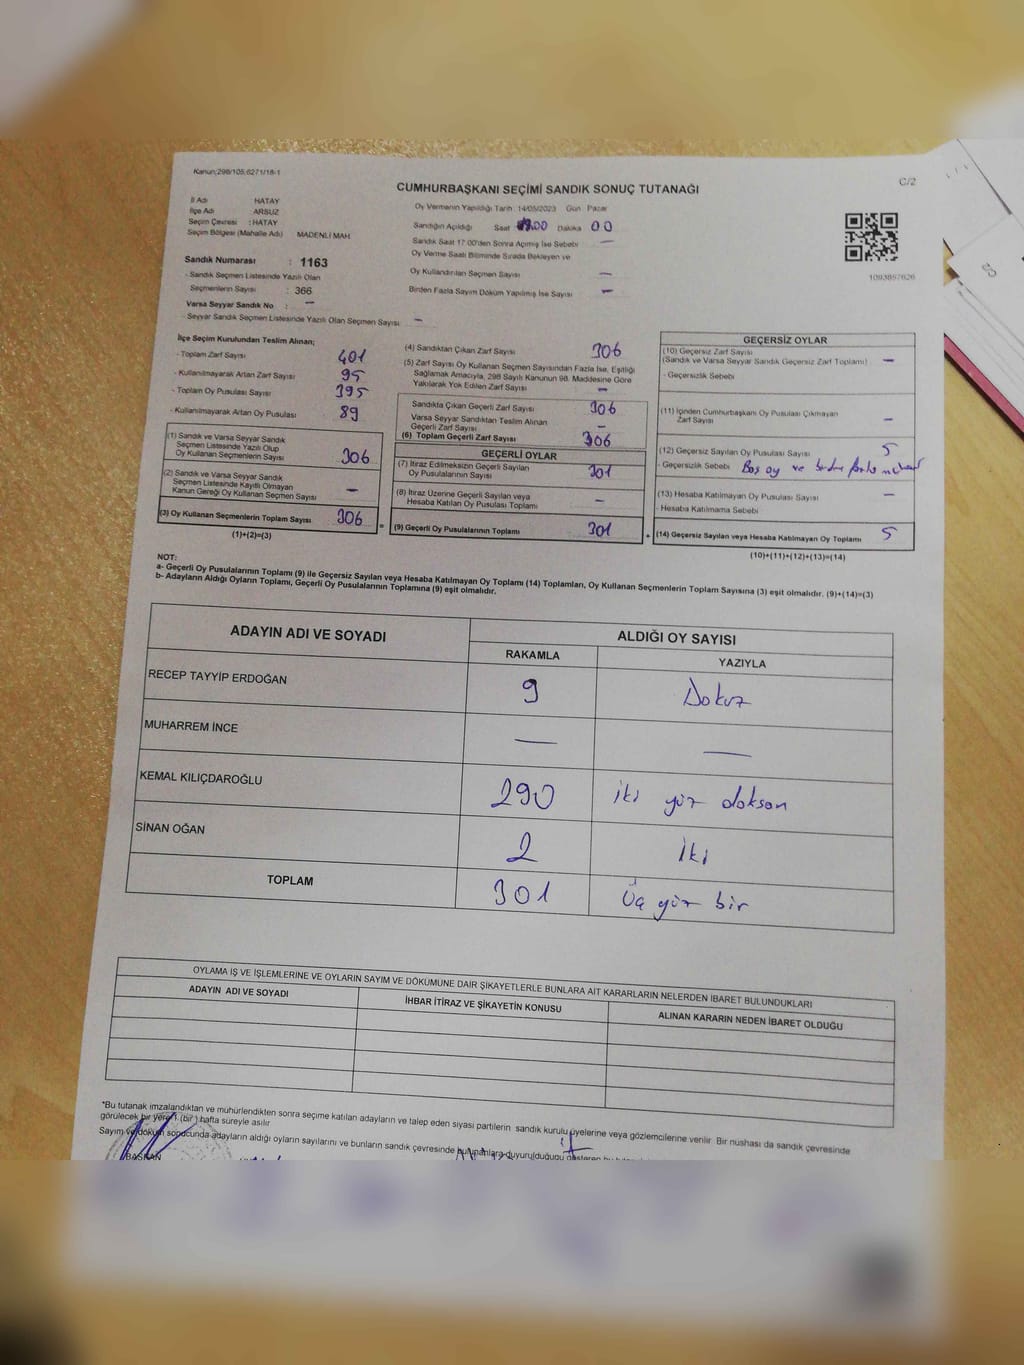 Kanun;298/105,6271/18-1
C/2
CUMHURBAŞKANI SEÇİMİ SANDIK SONUÇ TUTANAĞI
İl Adı HATAY
İlçe Adı ARSUZ
Seçim Çevresi : HATAY
Seçim Bölgesi (Mahalle Adı) MADENLİ MAH
Sandık Numarası : 1163
- Sandık Seçmen Listesinde Yazılı Olan
Seçmenlerin Sayısı : 366
Varsa Seyyar Sandık No : —
- Seyyar Sandık Seçmen Listesinde Yazılı Olan Seçmen Sayısı —
Oy Vermenin Yapıldığı Tarih: 14/05/2023 Gün Pazar
Sandığın Açıldığı Saat Dakika 00
Sandık Saat 17:00'den Sonra Açımış İse Sebebi —
Oy Verme Saati Bitiminde Sırada Bekleyen ve
Oy Kullandırılan Seçmen Sayısı —
Birden Fazla Sayım Döküm Yapılmış İse Sayısı —
1093857626
İlçe Seçim Kurulundan Teslim Alınan;
- Toplam Zarf Sayısı 401
- Kullanılmayarak Artan Zarf Sayısı 95
- Toplam Oy Pusulası Sayısı 395
- Kullanılmayarak Artan Oy Pusulası 89
(1) Sandık ve Varsa Seyyar Sandık
Seçmen Listesinde Yazılı Olup
Oy Kullanan Seçmenlerin Sayısı 306
(2) Sandık ve Varsa Seyyar Sandık
Seçmen Listesinde Kayıtlı Olmayan
Kanun Gereği Oy Kullanan Seçmen Sayısı —
(3) Oy Kullanan Seçmenlerin Toplam Sayısı 306
(1)+(2)=(3)
(4) Sandıktan Çıkan Zarf Sayısı 306
(5) Zarf Sayısı Oy Kullanan Seçmen Sayısından Fazla İse, Eşitliği
Sağlamak Amacıyla, 298 Sayılı Kanunun 98. Maddesine Göre
Yakılarak Yok Edilen Zarf Sayısı —
Sandıkta Çıkan Geçerli Zarf Sayısı 306
Varsa Seyyar Sandıktan Teslim Alınan
Geçerli Zarf Sayısı —
(6) Toplam Geçerli Zarf Sayısı 306
GEÇERLİ OYLAR
(7) İtiraz Edilmeksizin Geçerli Sayılan
Oy Pusulalarının Sayısı 301
(8) İtiraz Üzerine Geçerli Sayılan veya
Hesaba Katılan Oy Pusulaları Toplamı —
= (9) Geçerli Oy Pusulalarının Toplamı 301
GEÇERSİZ OYLAR
(10) Geçersiz Zarf Sayısı
(Sandık ve Varsa Seyyar Sandık Geçersiz Zarf Toplamı) —
- Geçersizlik Sebebi
(11) İçinden Cumhurbaşkanı Oy Pusulası Çıkmayan
Zarf Sayısı —
(12) Geçersiz Sayılan Oy Pusulası Sayısı 5
- Geçersizlik Sebebi Boş oy ve birden fazla mühür
(13) Hesaba Katılmayan Oy Pusulası Sayısı —
- Hesaba Katılmama Sebebi
+ (14) Geçersiz Sayılan veya Hesaba Katılmayan Oy Toplamı 5
(10)+(11)+(12)+(13)=(14)
NOT:
a- Geçerli Oy Pusulalarının Toplamı (9) ile Geçersiz Sayılan veya Hesaba Katılmayan Oy Toplamı (14) Toplamları, Oy Kullanan Seçmenlerin Toplam Sayısına (3) eşit olmalıdır. (9)+(14)=(3)
b- Adayların Aldığı Oyların Toplamı, Geçerli Oy Pusulalarının Toplamına (9) eşit olmalıdır.
ADAYIN ADI VE SOYADI ALDIĞI OY SAYISI
RAKAMLA YAZIYLA
RECEP TAYYİP ERDOĞAN 9 Dokuz
MUHARREM İNCE — —
KEMAL KILIÇDAROĞLU 290 iki yüz doksan
SİNAN OĞAN 2 İki
TOPLAM 301 Üç yüz bir
OYLAMA İŞ VE İŞLEMLERİNE VE OYLARIN SAYIM VE DÖKÜMÜNE DAİR ŞİKAYETLERLE BUNLARA AİT KARARLARIN NELERDEN İBARET BULUNDUKLARI
ADAYIN ADI VE SOYADI İHBAR İTİRAZ VE ŞİKAYETİN KONUSU ALINAN KARARIN NEDEN İBARET OLDUĞU
*Bu tutanak imzalandıktan ve mühürlendikten sonra seçime katılan adayların ve talep eden siyasi partilerin sandık kurulu üyelerine veya gözlemcilerine verilir. Bir nüshası da sandık çevresinde
görülecek bir yere 1 (bir) hafta süreyle asılır
Sayım ve döküm sonucunda adayların aldığı oyların sayılarını ve bunların sandık çevresinde bulunanlara duyurulduğunu gösteren bu
BAŞKAN